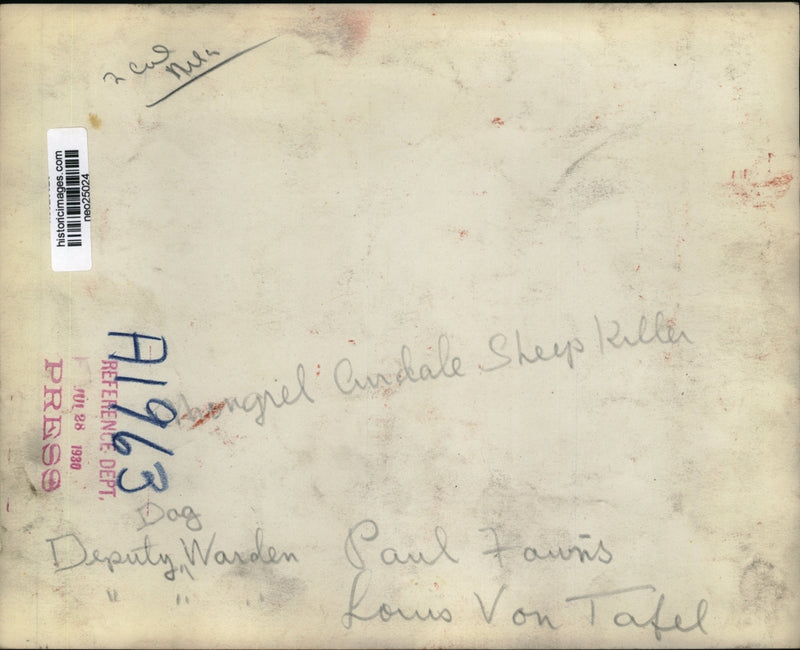 2 col
historicimages.com
neo25024
A1963
REFERENCE DEPT.
JUL 28 1930
PRESS
Mongrel Airdale Sheep Killer
Dog
Deputy ^ Warden Paul Fawns
" " " Louis Von Tafel